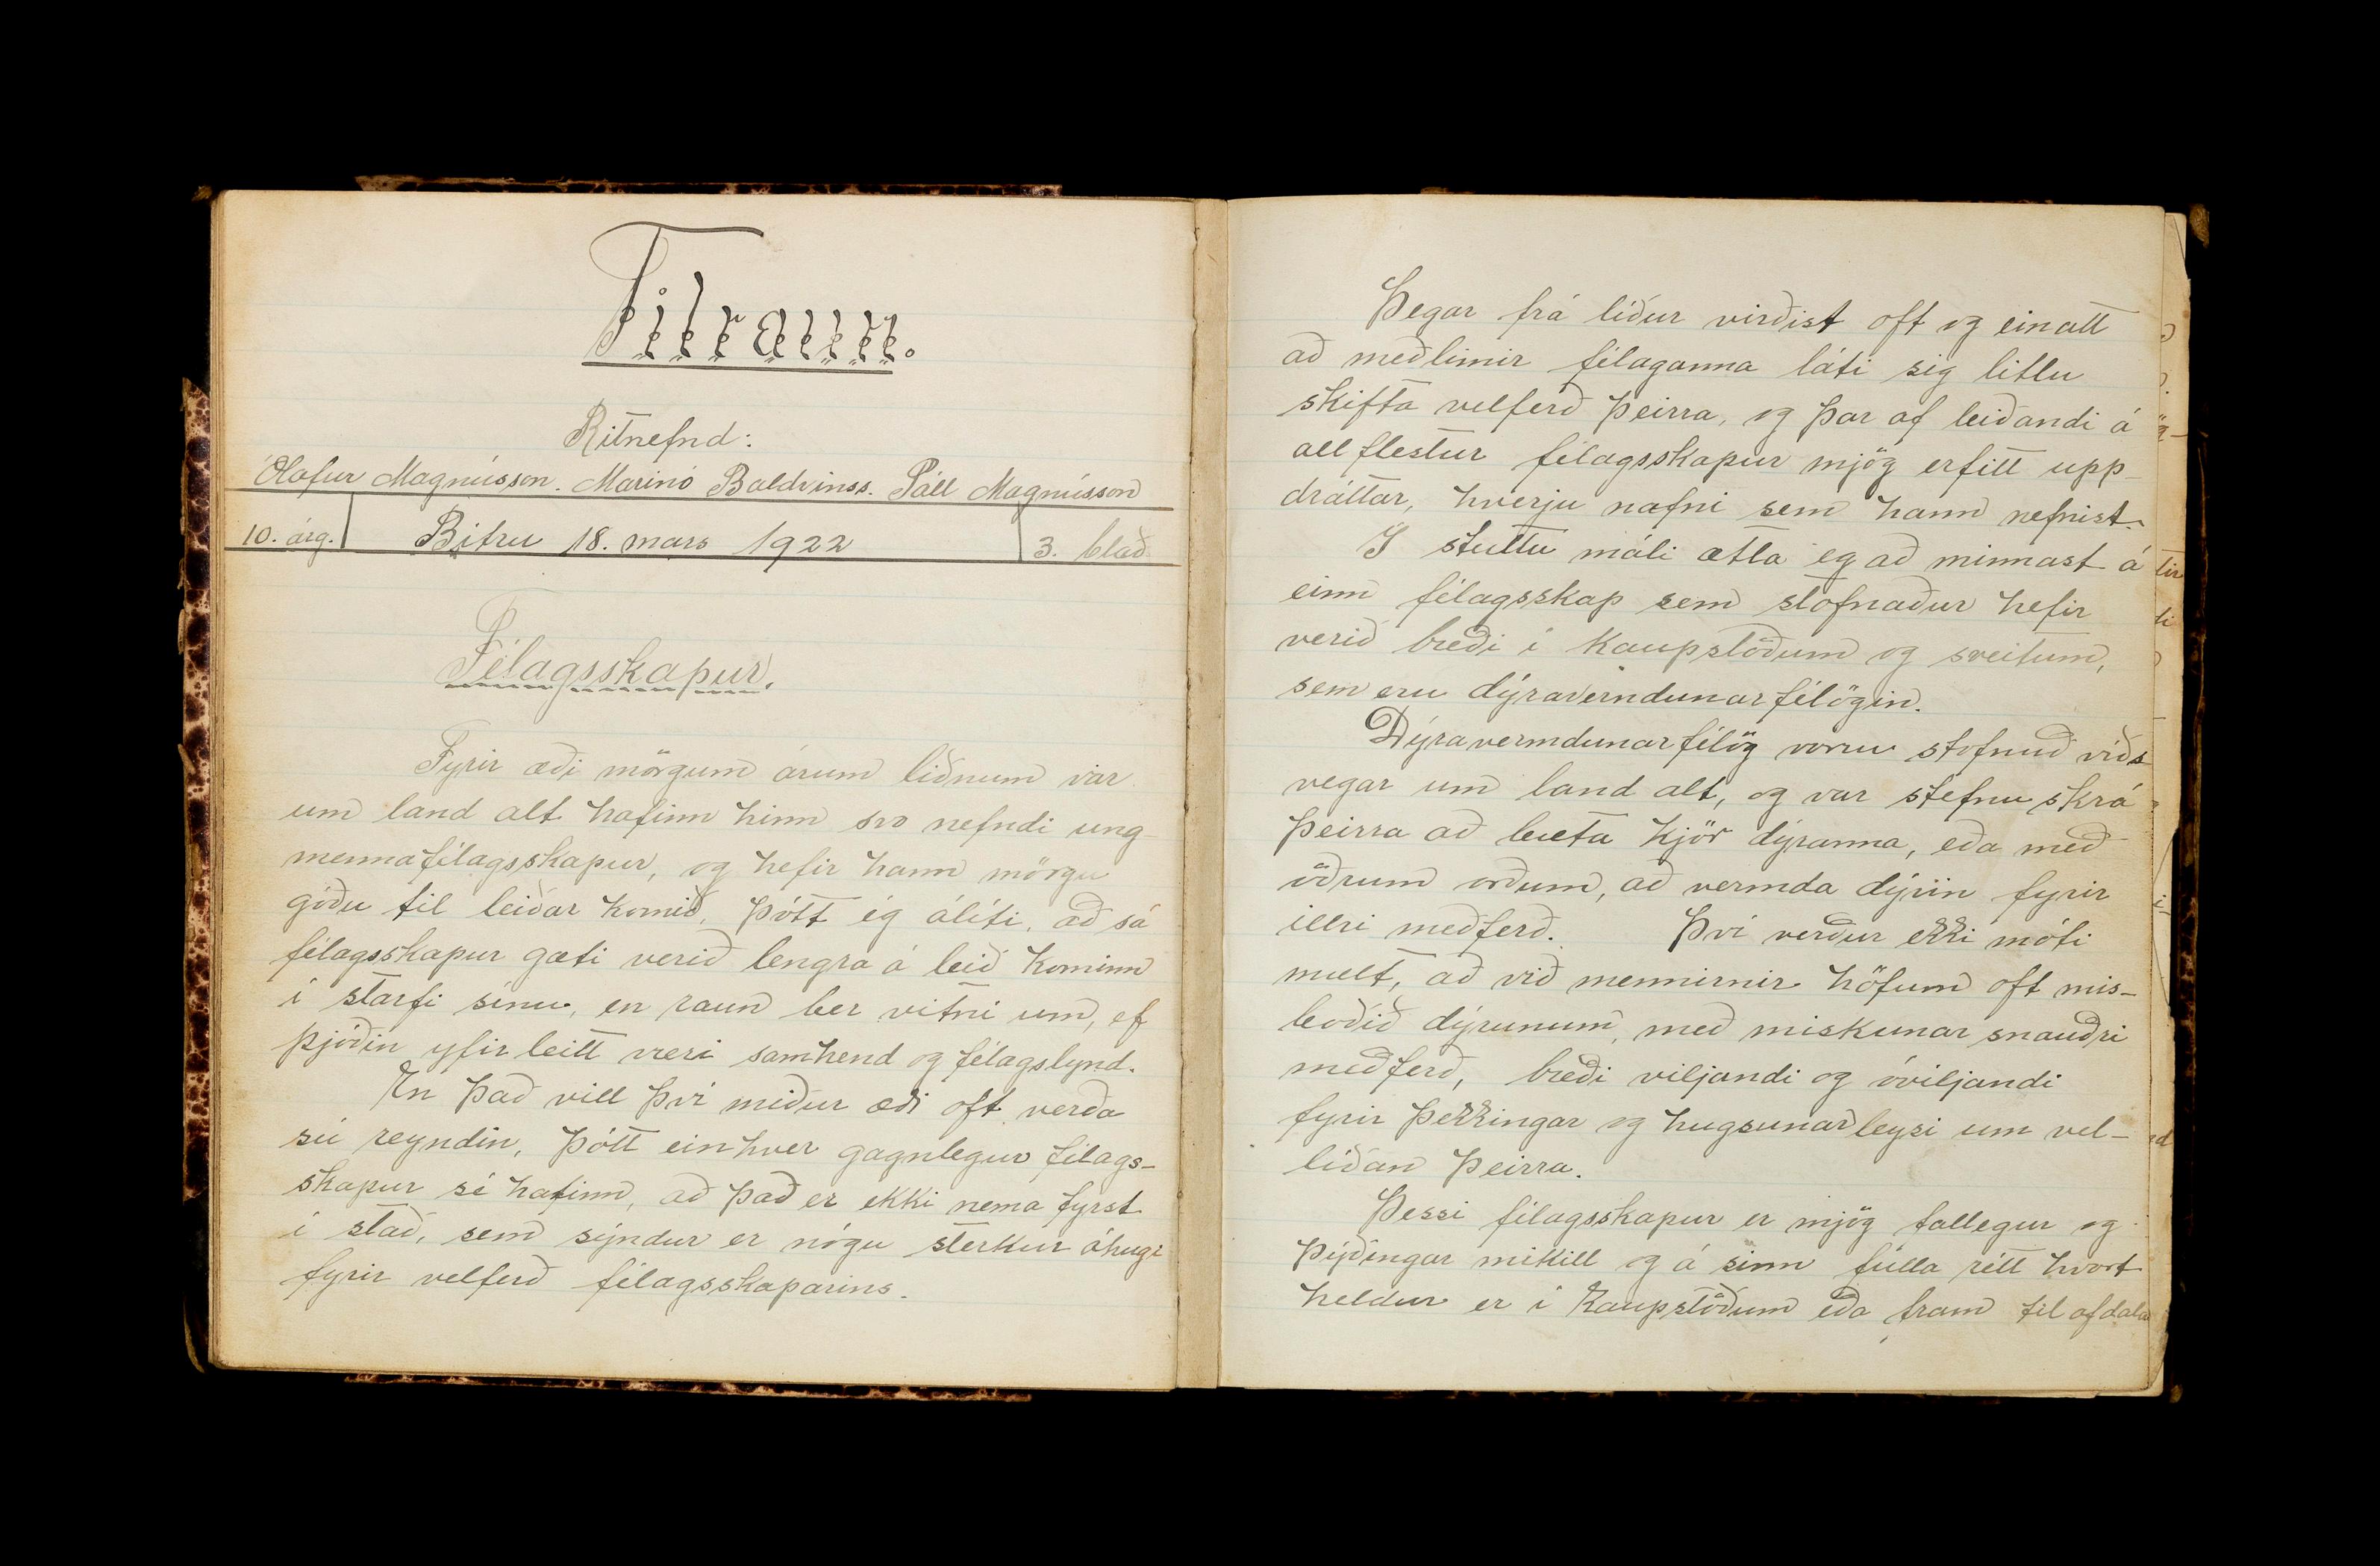 Tilraun.
Ritnefnd:
Ólafur Magnússon. Marinó Baldvinss. Páll Magnússon
10. árg. Bitru 18. mars 1922 3. blað
Félagsskapur.
Fyrir æði mörgum árum liðnum var
um land alt hafinn hinn svo nefndi ung-
mennafélagsskapur, og hefir hann mörgu
góðu til leiðar komið, þótt ég álíti, að sá
félagsskapur gæti verið lengra á leið kominn
í starfi sínu, en raun ber vitni um, ef
þjóðin yfir leitt væri samhend og félagslynd.
En það vill því miður æði oft verða
sú reyndin, þótt einhver gagnlegur félags-
skapur sé hafinn, að það er ekki nema fyrst
í stað, sem sýndur er nógu sterkur áhugi
fyrir velferð félagsskaparins.
Þegar frá líður virðist oft og einatt
að meðlimir félaganna láti sig litlu
skifta velferð þeirra, og þar af leiðandi á
all flestur félagsskapur mjög erfitt upp-
dráttar, hverju nafni sem hann nefnist.
Í stuttu máli ætla eg að minnast á
einn félagsskap sem stofnaður hefir
verið bæði í kaupstöðum og sveitum,
sem eru dýraverndunarfélögin.
Dýravermdunarfélög vorru stofnuð víðs
vegar um land alt, og var stefnu skrá
þeirra að bæta kjör dýranna, eða með
öðrum orðum, að vermda dýriin fyrir
illri meðferð. Því verður ekki móti
mælt, að við mennirnir höfum oft mis-
boðið dýrunum, með miskunar snauðri
meðferð, bæði viljandi og óviljandi
fyrir þekkingar og hugsunarleysi um vel-
líðan þeirra.
Þessi félagsskapur er mjög fallegur og
þýðingar mikill og á sinn fulla rétt hvort
heldur er í kaupstöðum eða fram til afdala